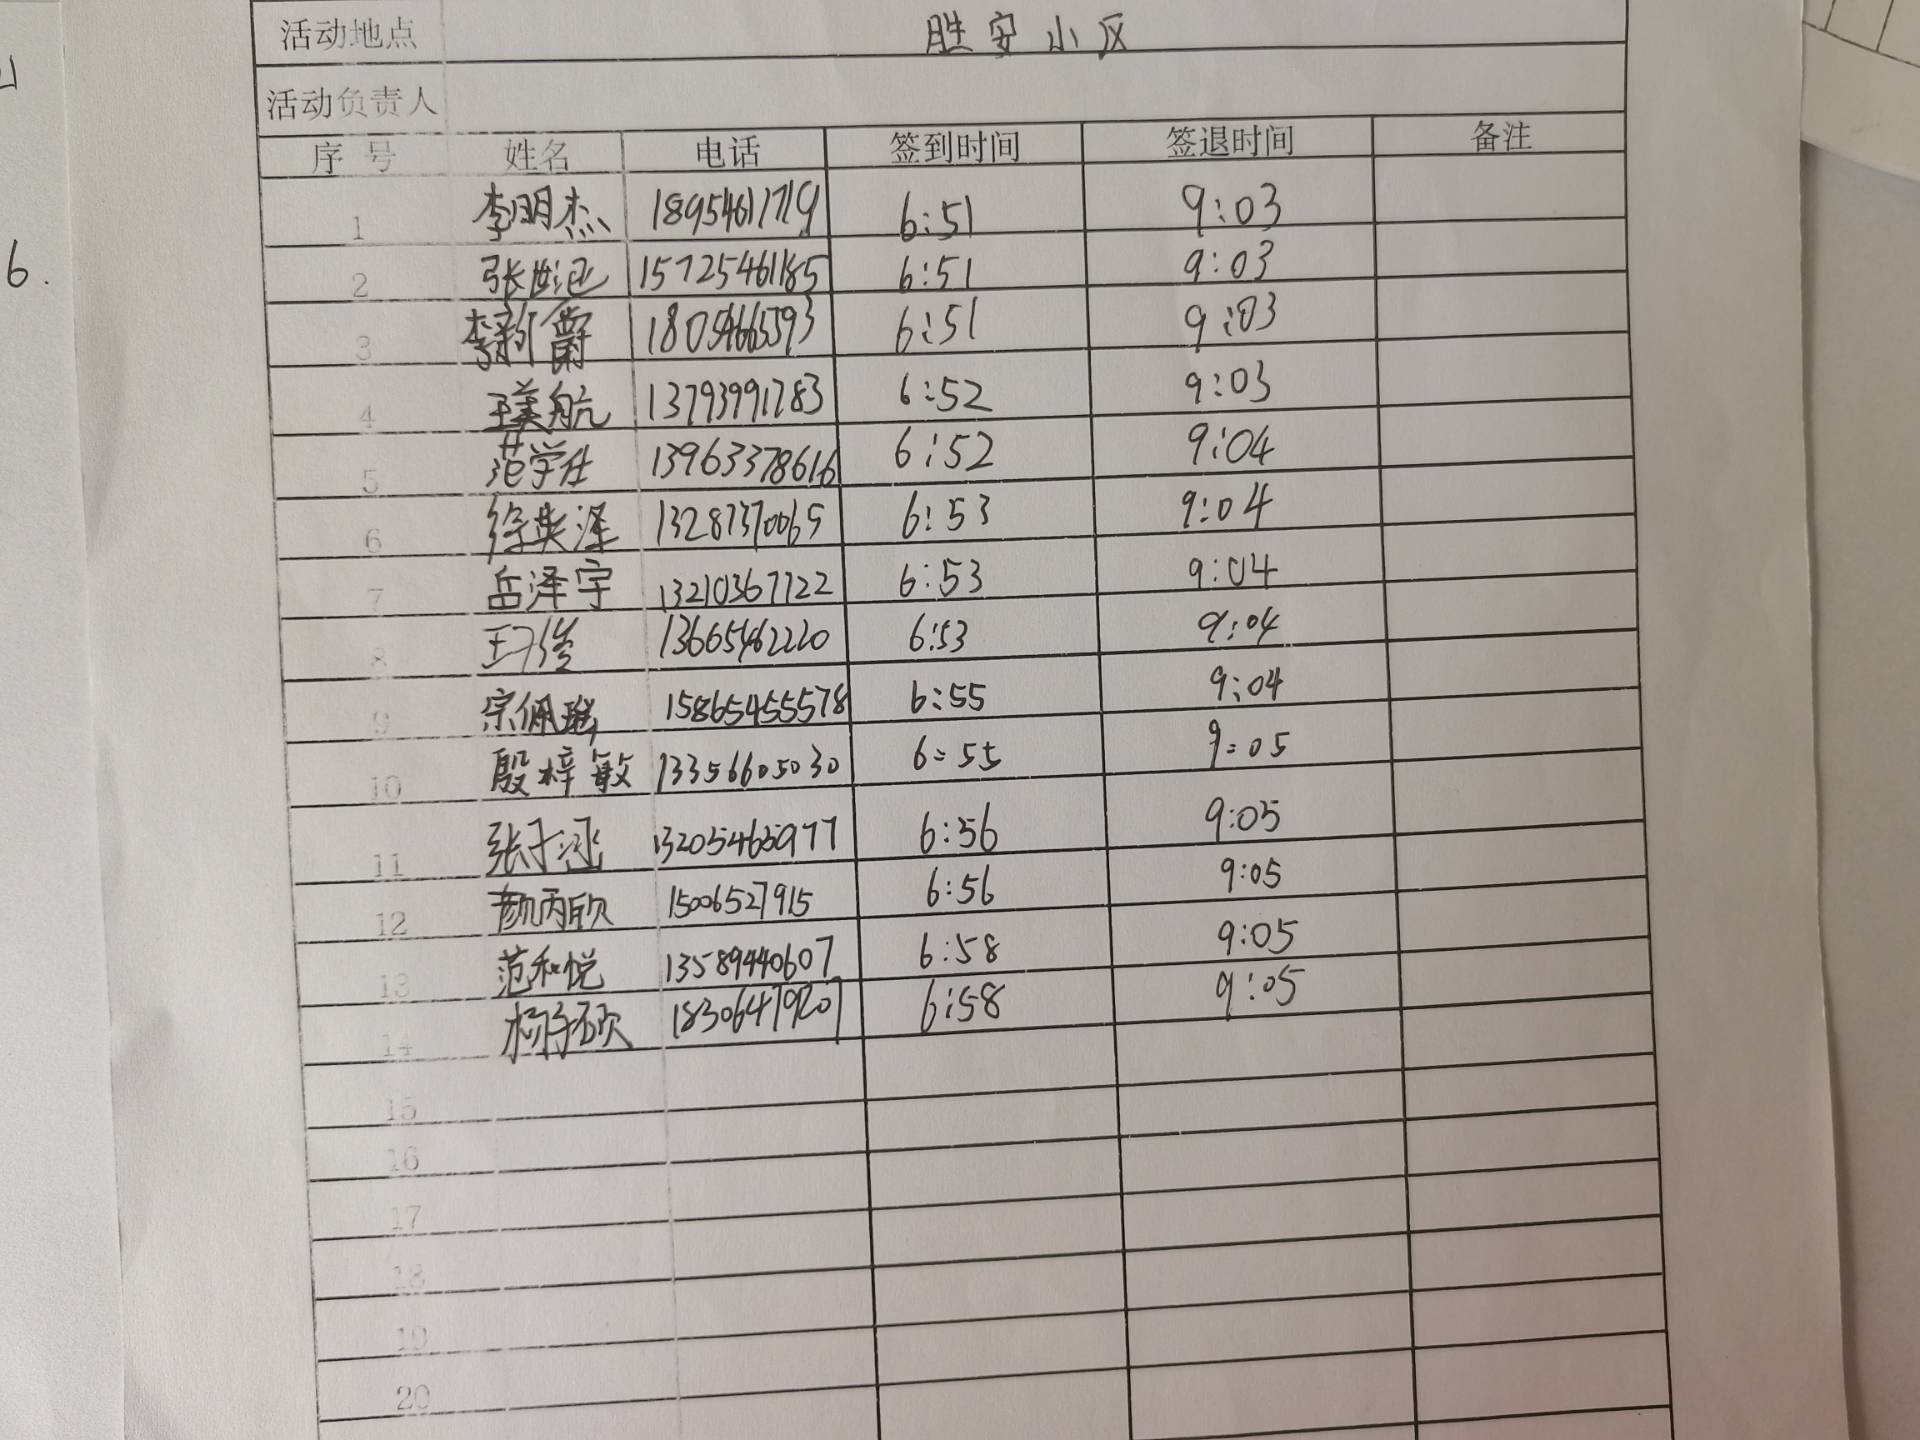 活动地点 胜安小区
活动负责人
序号 姓名 电话 签到时间 签退时间 备注
1 李明杰 18954611719 6:51 9:03
2 张世 15725461185 6:51 9:03
3 李新爵 18054665393 6:51 9:03
4 王美航 13793991783 6:52 9:03
5 范学仕 13963378616 6:52 9:04
6 徐英泽 13287370065 6:53 9:04
7 岳泽宇 13210367122 6:53 9:04
8 王 13665462220 6:53 9:04
9 宗佩瑶 15865455578 6:55 9:04
10 殷梓敏 13356605030 6:55 9:05
11 张子涵 13205465977 6:56 9:05
12 颜丙欣 15006527915 6:56 9:05
13 范和悦 13589440607 6:58 9:05
14 杨子硕 18306479207 6:58 9:05
15
16
17
18
19
20
6.